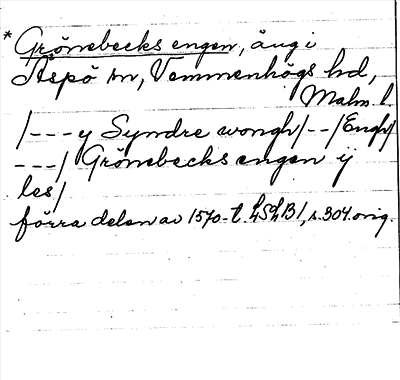 * Grönebecks engen, äng i
Äspö sn, Vemmenhögs hd,
Malm. l.
/--- y Syndre wongh/--/Engh/
---/ Grönebecks engen ÿ
les/
förra delen av 1570-t. LSLB1, s. 304. orig.